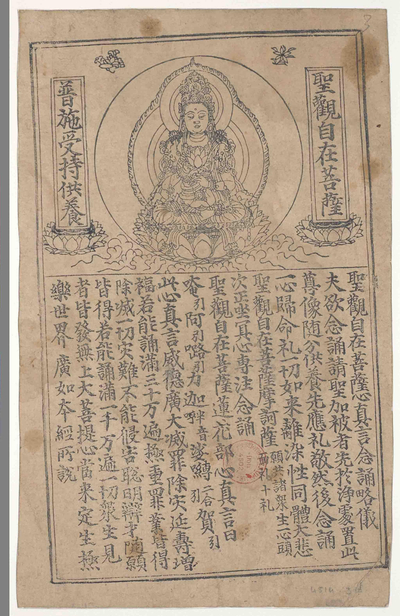 聖觀自在菩薩
普施受持供養
聖觀自在菩薩心真言念誦略儀
夫欲念誦請聖加被者先於淨處置此
尊像隨分供養先應礼敬然後念誦
一心歸命礼一切如來離染性同體大悲
聖觀自在菩薩摩訶薩願共諸衆生一心頭面礼十礼
次正坐冥心專注念誦
聖觀自在菩薩蓮花部心真言曰
唵引阿引嚕引力迦半音娑嚩二合賀引
此心真言威德廣大滅罪除災延壽增
福若能誦滿三十万遍極重罪業皆得
除滅一切災難不能侵害聰明辯才隨願
皆得若能誦滿一千万遍一切衆生見
者皆發無上大菩提心當來定生極
樂世界廣如本經所說